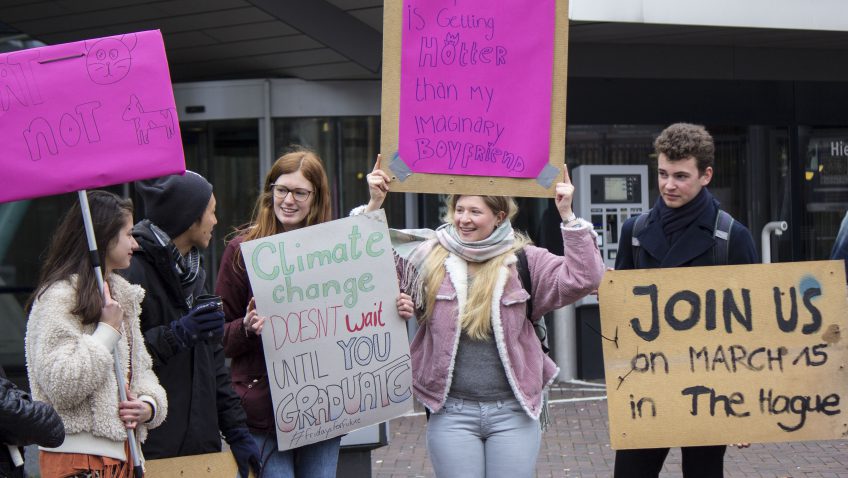 ART
NOT
is Getting
HOtter
than my
imaginary
Boyfriend
Climate
change
DOESN'T wait
UNTIL YOU
GRADUATE
#Fridaysforfuture
JOIN US
on MARCH 15
in The Hague
Hie